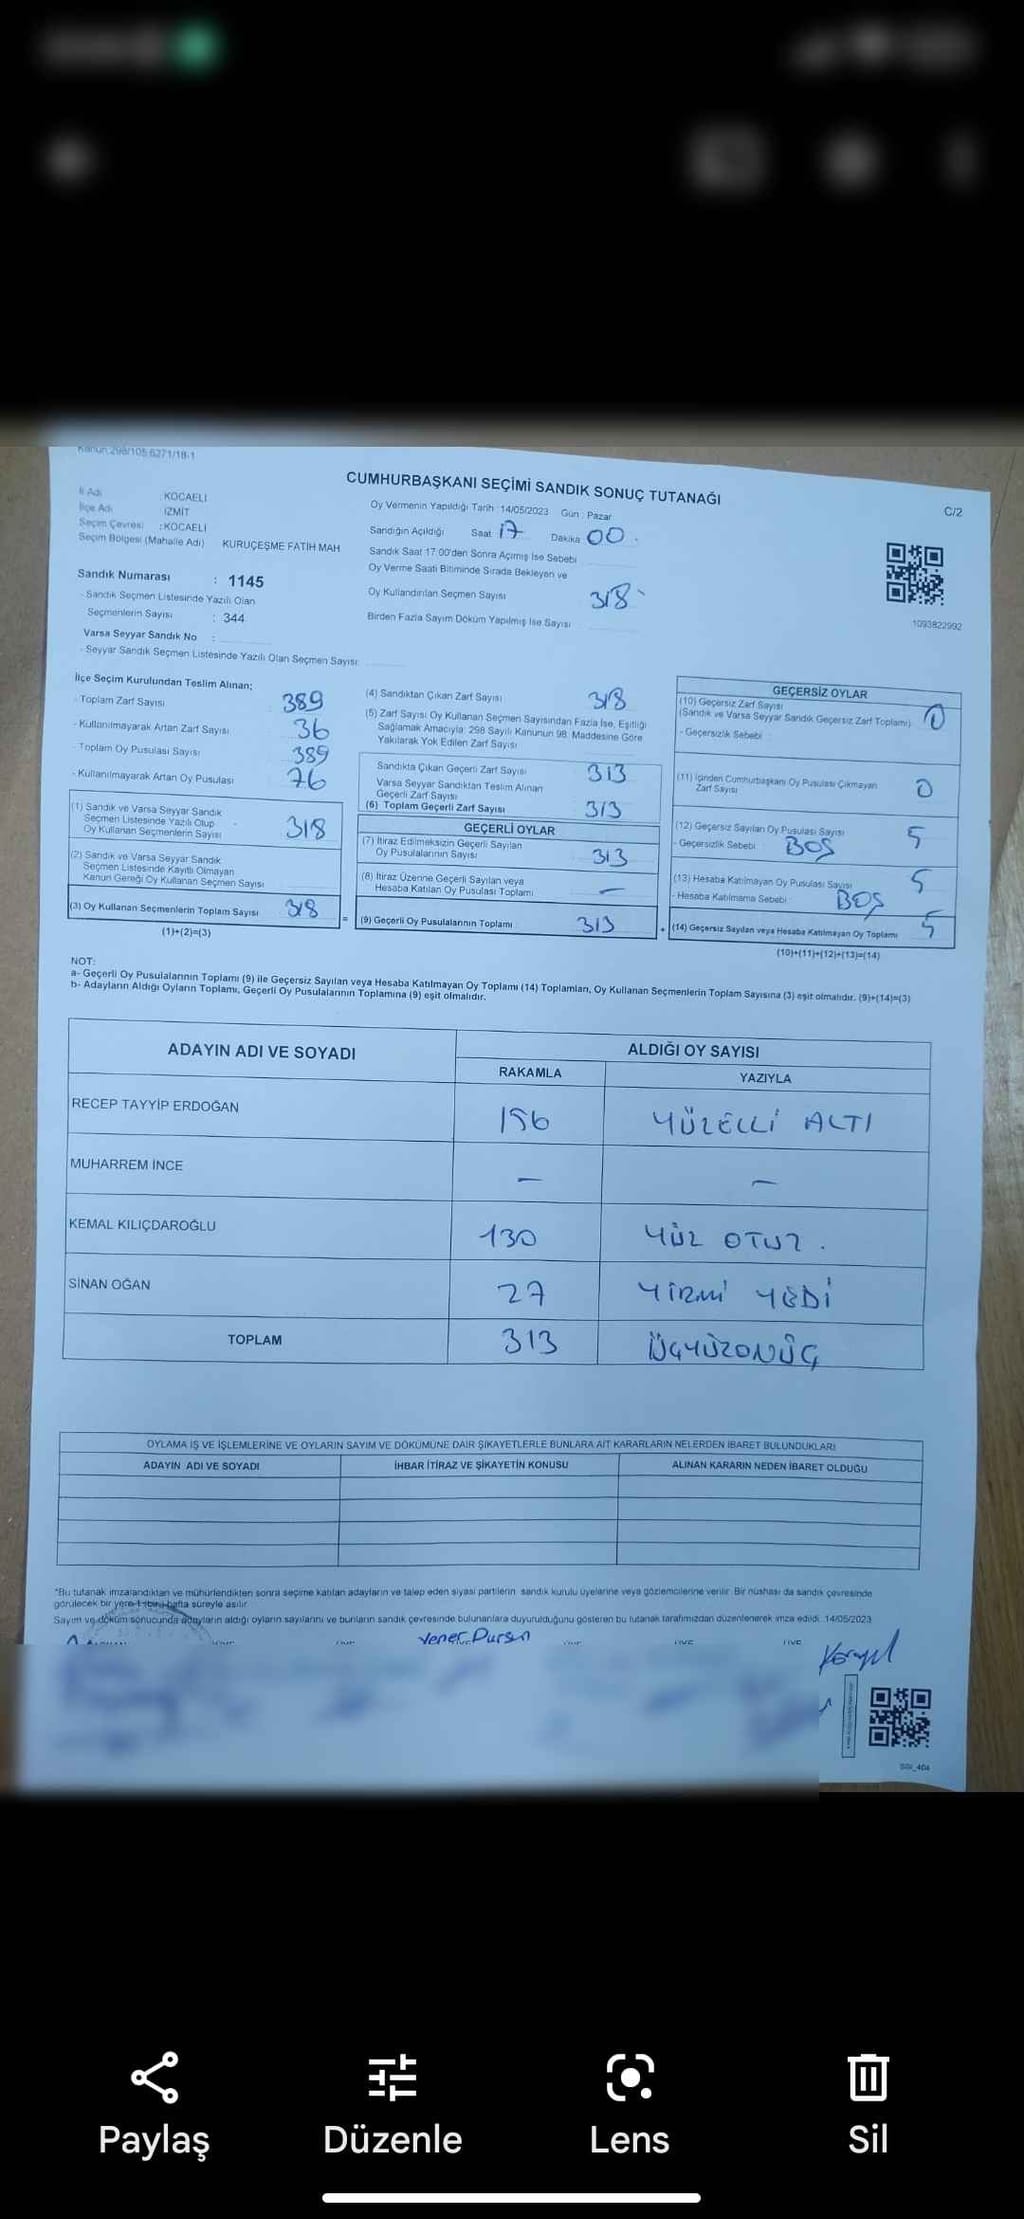 Kanun:298/105,6271/18-1
CUMHURBAŞKANI SEÇİMİ SANDIK SONUÇ TUTANAĞI
C/2
İl Adı : KOCAELİ
İlçe Adı : İZMİT
Seçim Çevresi : KOCAELİ
Seçim Bölgesi (Mahalle Adı) KURUÇEŞME FATİH MAH
Oy Vermenin Yapıldığı Tarih : 14/05/2023 Gün : Pazar
Sandığın Açıldığı Saat 17 Dakika 00
Sandık Saat 17:00'den Sonra Açılmış İse Sebebi
Oy Verme Saati Bitiminde Sırada Bekleyen ve
Oy Kullandırılan Seçmen Sayısı 318
Birden Fazla Sayım Döküm Yapılmış İse Sayısı
1093822992
Sandık Numarası : 1145
- Sandık Seçmen Listesinde Yazılı Olan
Seçmenlerin Sayısı : 344
Varsa Seyyar Sandık No :
- Seyyar Sandık Seçmen Listesinde Yazılı Olan Seçmen Sayısı:
İlçe Seçim Kurulundan Teslim Alınan;
- Toplam Zarf Sayısı 389
- Kullanılmayarak Artan Zarf Sayısı 36
- Toplam Oy Pusulası Sayısı 389
- Kullanılmayarak Artan Oy Pusulası 76
(1) Sandık ve Varsa Seyyar Sandık
Seçmen Listesinde Yazılı Olup
Oy Kullanan Seçmenlerin Sayısı 318
(2) Sandık ve Varsa Seyyar Sandık
Seçmen Listesinde Kayıtlı Olmayan
Kanun Gereği Oy Kullanan Seçmen Sayısı
(3) Oy Kullanan Seçmenlerin Toplam Sayısı 318
(1)+(2)=(3)
(4) Sandıktan Çıkan Zarf Sayısı 318
(5) Zarf Sayısı Oy Kullanan Seçmen Sayısından Fazla İse, Eşitliği
Sağlamak Amacıyla; 298 Sayılı Kanunun 98. Maddesine Göre
Yakılarak Yok Edilen Zarf Sayısı
Sandıkta Çıkan Geçerli Zarf Sayısı 313
Varsa Seyyar Sandıktan Teslim Alınan
Geçerli Zarf Sayısı
(6) Toplam Geçerli Zarf Sayısı 313
GEÇERLİ OYLAR
(7) İtiraz Edilmeksizin Geçerli Sayılan
Oy Pusulalarının Sayısı 313
(8) İtiraz Üzerine Geçerli Sayılan veya
Hesaba Katılan Oy Pusulası Toplamı –
= (9) Geçerli Oy Pusulalarının Toplamı 313
GEÇERSİZ OYLAR
(10) Geçersiz Zarf Sayısı
(Sandık ve Varsa Seyyar Sandık Geçersiz Zarf Toplamı) 0
- Geçersizlik Sebebi :
(11) İçinden Cumhurbaşkanı Oy Pusulası Çıkmayan
Zarf Sayısı 0
(12) Geçersiz Sayılan Oy Pusulası Sayısı 5
- Geçersizlik Sebebi BOŞ
(13) Hesaba Katılmayan Oy Pusulası Sayısı 5
- Hesaba Katılmama Sebebi BOŞ
+ (14) Geçersiz Sayılan veya Hesaba Katılmayan Oy Toplamı 5
(10)+(11)+(12)+(13)=(14)
NOT:
a- Geçerli Oy Pusulalarının Toplamı (9) ile Geçersiz Sayılan veya Hesaba Katılmayan Oy Toplamı (14) Toplamları, Oy Kullanan Seçmenlerin Toplam Sayısına (3) eşit olmalıdır. (9)+(14)=(3)
b- Adayların Aldığı Oyların Toplamı, Geçerli Oy Pusulalarının Toplamına (9) eşit olmalıdır.
ADAYIN ADI VE SOYADI ALDIĞI OY SAYISI
RAKAMLA YAZIYLA
RECEP TAYYİP ERDOĞAN 156 YÜZELLİ ALTI
MUHARREM İNCE – –
KEMAL KILIÇDAROĞLU 130 YÜZ OTUZ .
SİNAN OĞAN 27 YİRMİ YEDİ
TOPLAM 313 ÜÇYÜZONÜÇ
OYLAMA İŞ VE İŞLEMLERİNE VE OYLARIN SAYIM VE DÖKÜMÜNE DAİR ŞİKAYETLERLE BUNLARA AİT KARARLARIN NELERDEN İBARET BULUNDUKLARI
ADAYIN ADI VE SOYADI İHBAR İTİRAZ VE ŞİKAYETİN KONUSU ALINAN KARARIN NEDEN İBARET OLDUĞU
*Bu tutanak imzalandıktan ve mühürlendikten sonra seçime katılan adayların ve talep eden siyasi partilerin sandık kurulu üyelerine veya gözlemcilerine verilir. Bir nüshası da sandık çevresinde
görülecek bir yere 1 (bir) hafta süreyle asılır.
Sayım ve döküm sonucunda adayların aldığı oyların sayılarını ve bunların sandık çevresinde bulunanlara duyurulduğunu gösteren bu tutanak tarafımızdan düzenlenerek imza edildi. 14/05/2023
Yener Dursun
Paylaş Düzenle Lens Sil